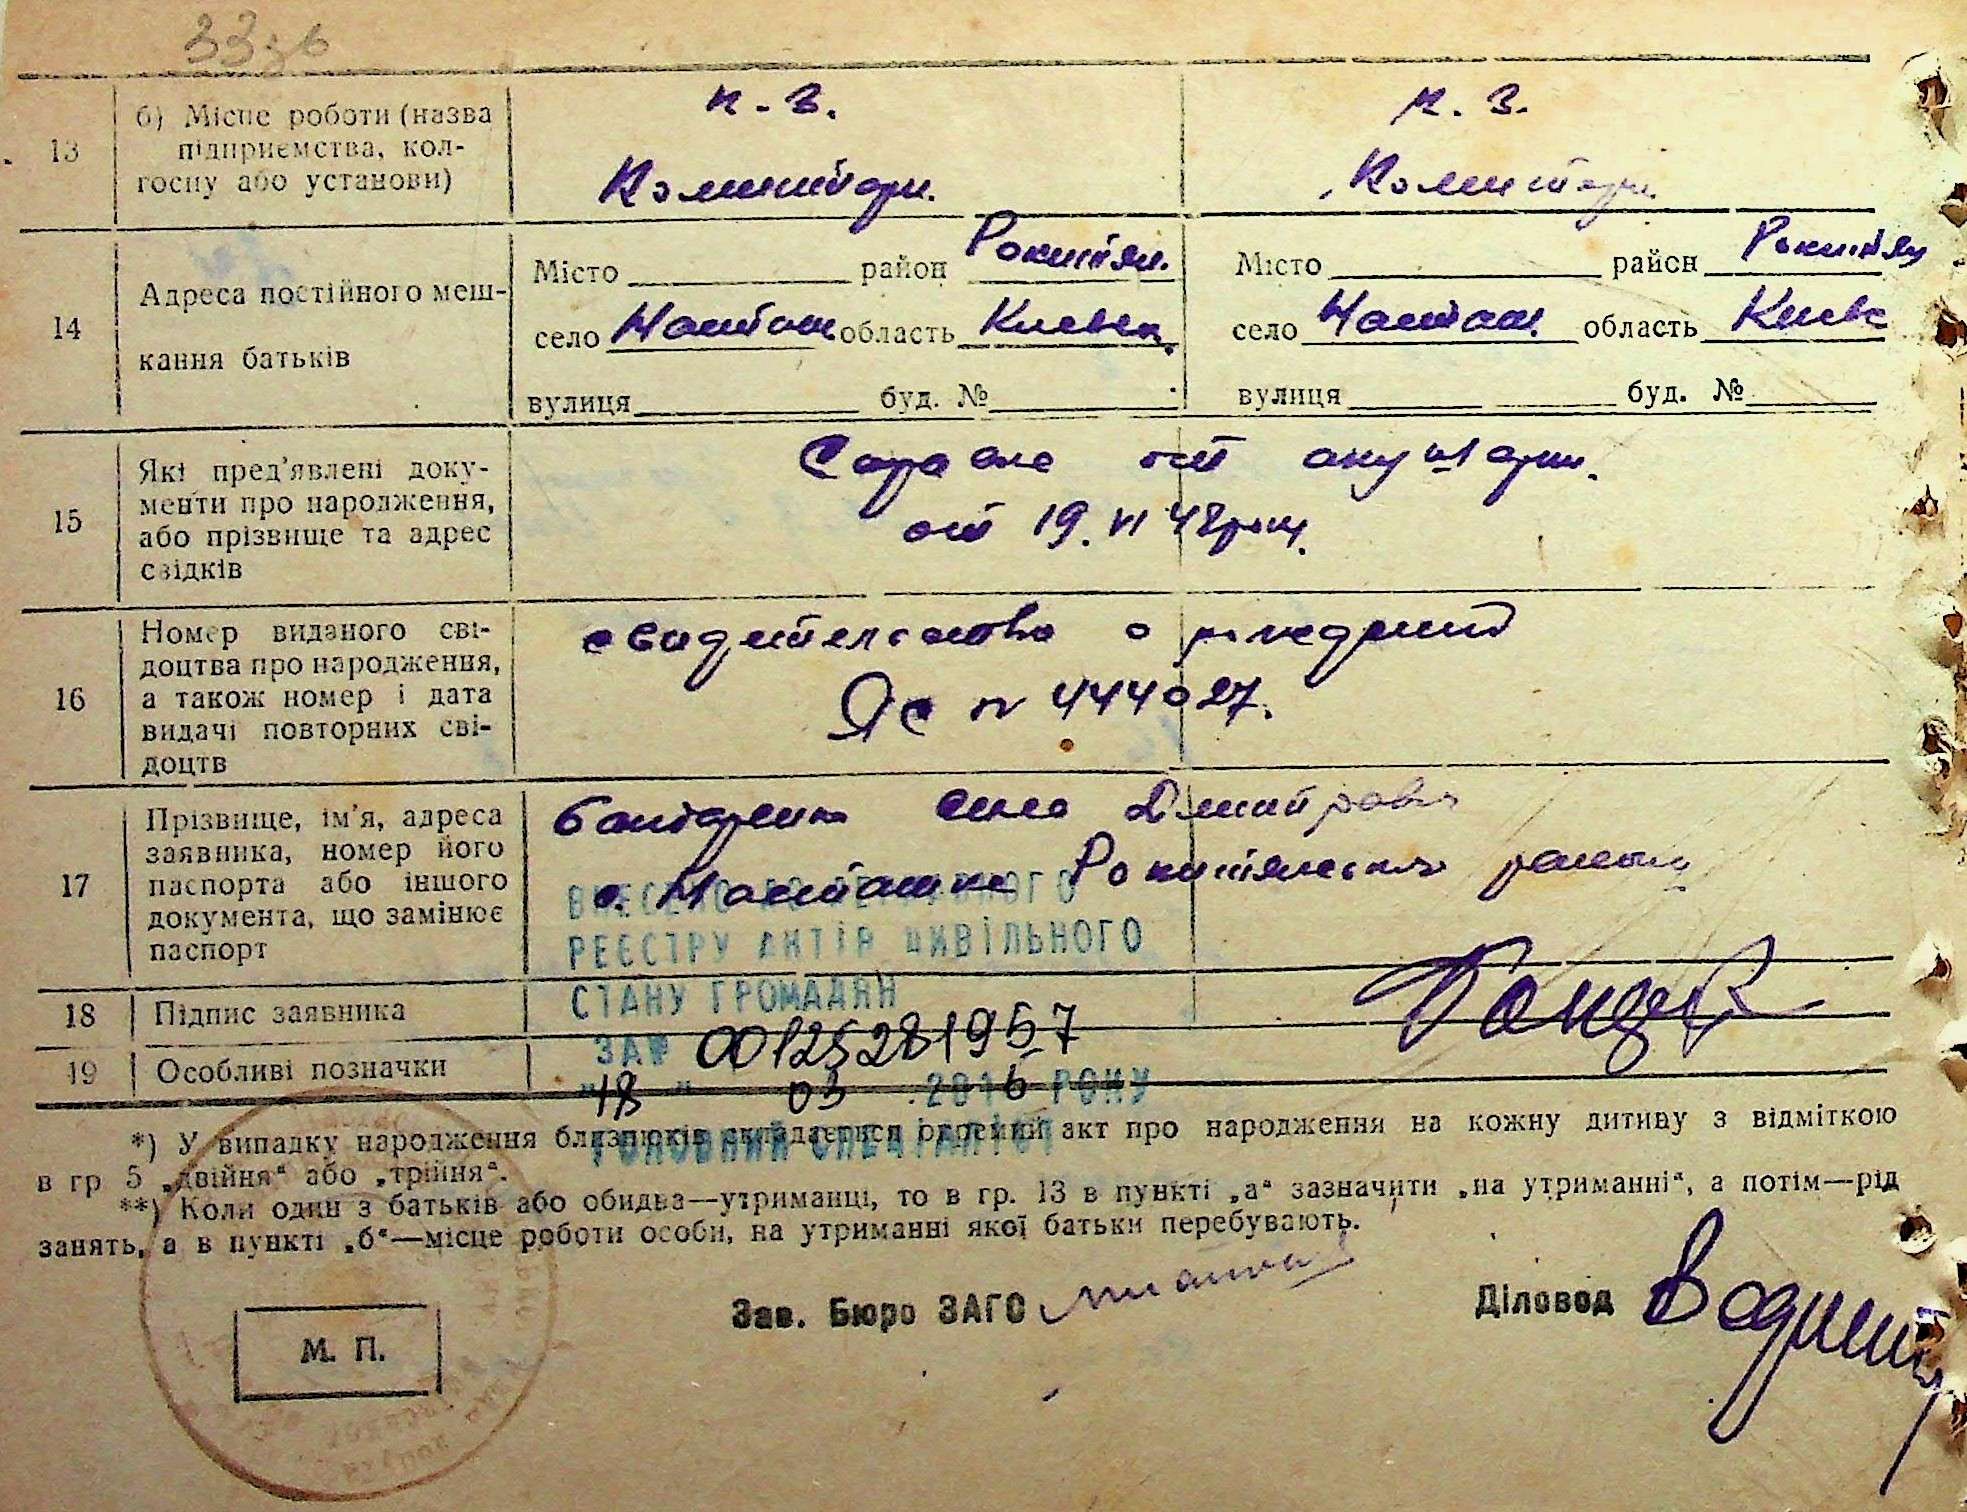 33зв
13 б) Місце роботи (назва підприємства, колгоспу або установи)
к. з. к. з.
Коминтерн. Коминтерн.
14 Адреса постійного мешкання батьків
Місто район Рокитян. Місто район Рокитян
село Насташк. область Киевск. село Насташк. область Киевс
вулиця буд. № вулиця буд. №
15 Які пред'явлені документи про народження, або прізвище та адрес свідків
Справка от акушерки.
от 19.VI 48
16 Номер виданого свідоцтва про народження, а також номер і дата видачі повторних свідоцтв
свидетельство о рождении
ЯС № 444027.
17 Прізвище, ім'я, адреса заявника, номер його паспорта або іншого документа, що замінює паспорт
Бондаренко Дмитров
с. Насташка Рокитянского района
ВНЕСЕНО ДО ДЕРЖАВНОГО
РЕЄСТРУ АКТІВ ЦИВІЛЬНОГО
СТАНУ ГРОМАДЯН
18 Підпис заявника
ЗА № 00125281957
19 Особливі позначки
"18" 03 2016 РОКУ
ГОЛОВНИЙ СПЕЦІАЛІСТ
*) У випадку народження близнюків складається окремий акт про народження на кожну дитину з відміткою
в гр 5 „двійня“ або „трійня“.
**) Коли один з батьків або обидва—утриманці, то в гр. 13 в пункті „а“ зазначити „на утриманні“, а потім—рід
занять, а в пункті „б“—місце роботи особи, на утриманні якої батьки перебувають.
Зав. Бюро ЗАГС Діловод
М. П.